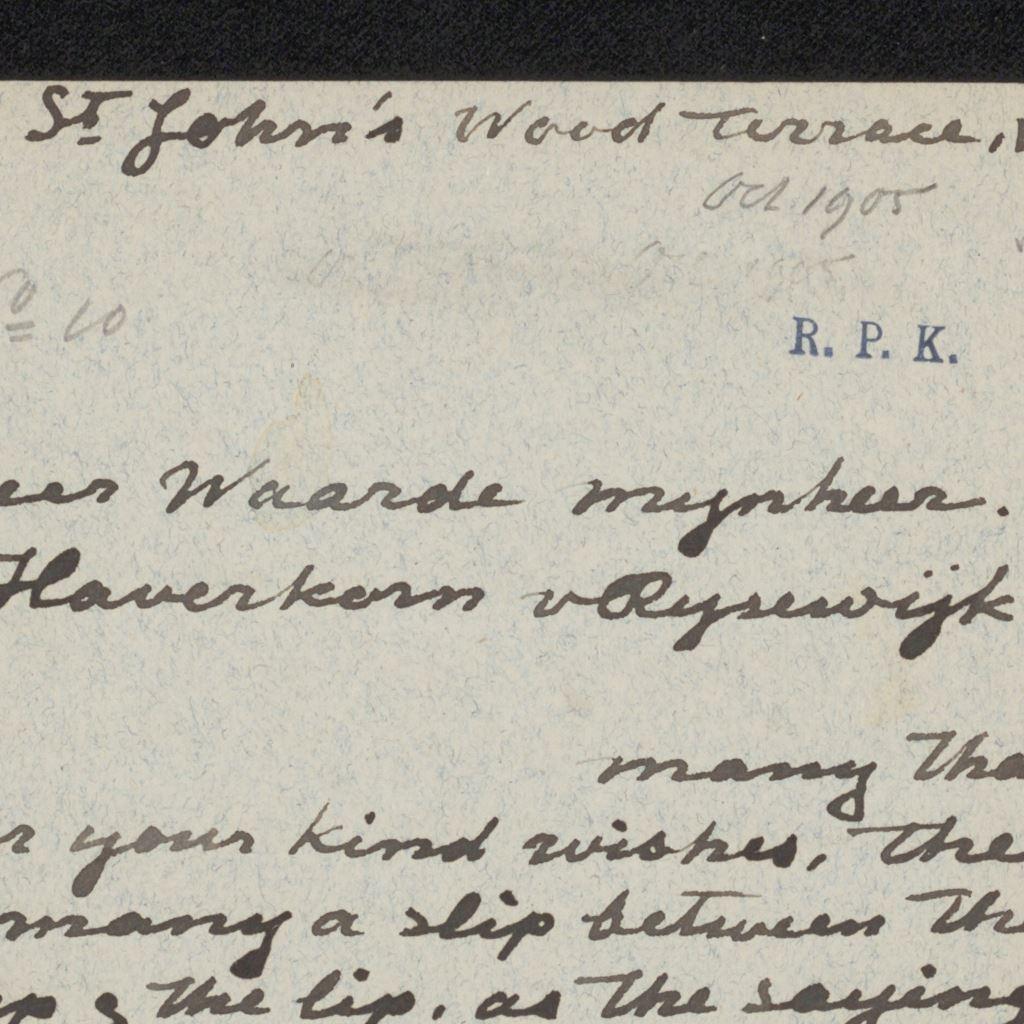 St John's Wood Terrace,
Oct 1905
No 10
R. P. K.
Waarde mynheer.
Haverkorn v Rysewijk
many tha
r your kind wishes, the
many a slip between the
p & the lip. as the saying